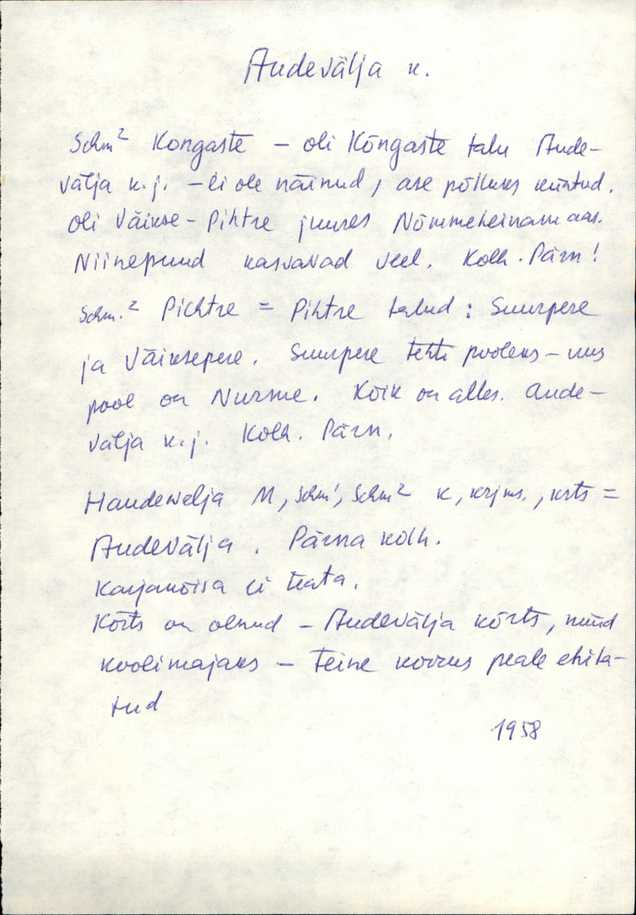 Audevälja k.
Schm² Kongaste – oli Kõngaste talu Aude-
välja k.j. – ei ole näinud, ase põlluks küntud.
Oli Väikse-Pihtre juures Nõmmeheinamaas.
Niinepuud kasvavad veel. Kolh. Pärn!
Schm.² Pichtre = Pihtre talud: Suurpere
ja Väiksepere. Suurpere tehti pooleks – uus
pool on Nurme. Kõik on alles. Aude-
välja k.j. Kolh. Pärn.
Haudewelja M, Schm¹, Schm² k, krjms., krts =
Audevälja. Pärna kolh.
Karjamõisa ei teata.
Kõrts on olnud – Audevälja kõrts, nüüd
koolimajaks – Teine korrus peale ehita-
tud
1958